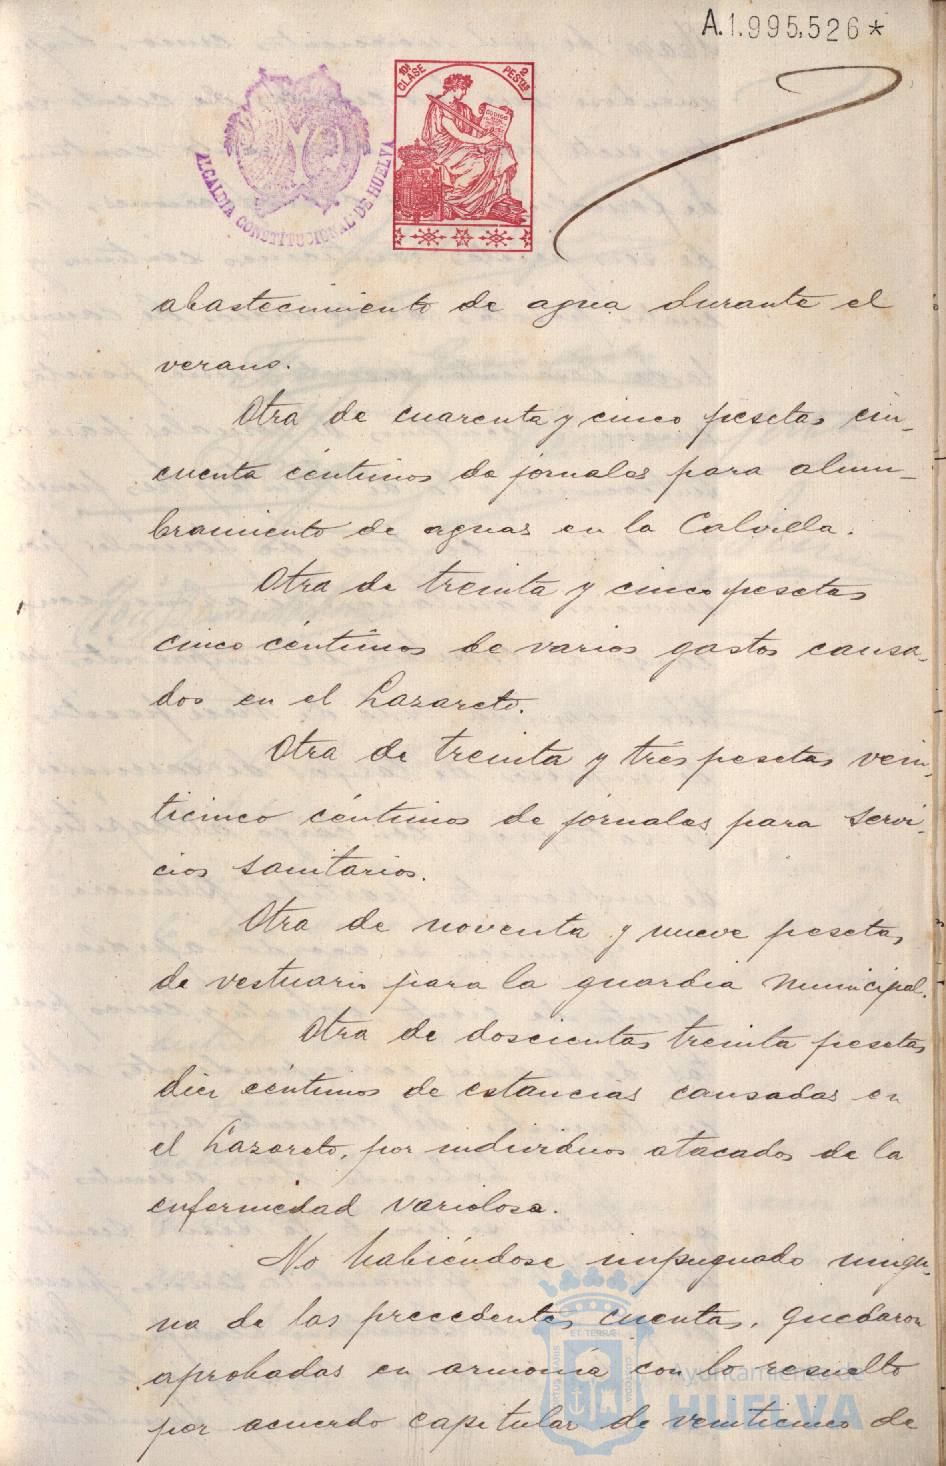 A.1.995,526*
10ª CLASE
2 PESTAS
CODIGO
ALCALDIA CONSTITUCIONAL DE HUELVA
abastecimiento de agua durante el
verano.
Otra de cuarenta y cinco pesetas cin-
cuenta céntimos de jornales para alum-
bramiento de aguas en la Calvilla.
Otra de treinta y cinco pesetas
cinco céntimos de varios gastos causa-
dos en el Lazareto.
Otra de treinta y tres pesetas vein-
ticinco céntimos de jornales para servi-
cios sanitarios.
Otra de noventa y nueve pesetas
de vestuario para la guardia municipal.
Otra de doscientas treinta pesetas
diez céntimos de estancias causadas en
el Lazareto, por individuos atacados de la
enfermedad variolosa.
No habiéndose impugnado ningu-
na de las precedentes cuentas, quedaron
aprobadas en armonia con lo resuelto
por acuerdo capitular de veinticinco de
Ayuntamiento de
HUELVA